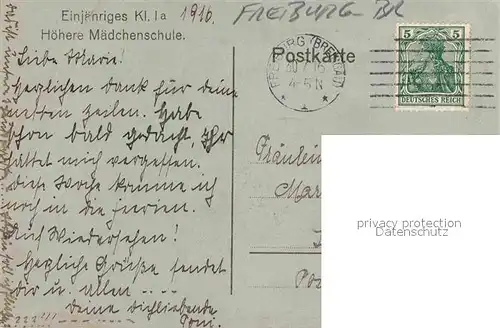 Einjähriges Kl. Ia 1916.
FREIBURG - BR
Höhere Mädchenschule.
Postkarte
FREIBURG (BREISGAU)
4-5 N
5 5
DEUTSCHES REICH
Liebe Marie!
Herzlichen dank für dein
netten zeilen. Habe
schon bald gedacht, Ihr
hättet mich vergessen.
diese Woche komme ich
noch in die ferien.
Auf Wiedersehen!
Herzliche Grüße sendet
dir u. allen
deine dichliebende
Toni.
Fräulein
Mar
Po
privacy protection
Datenschutz